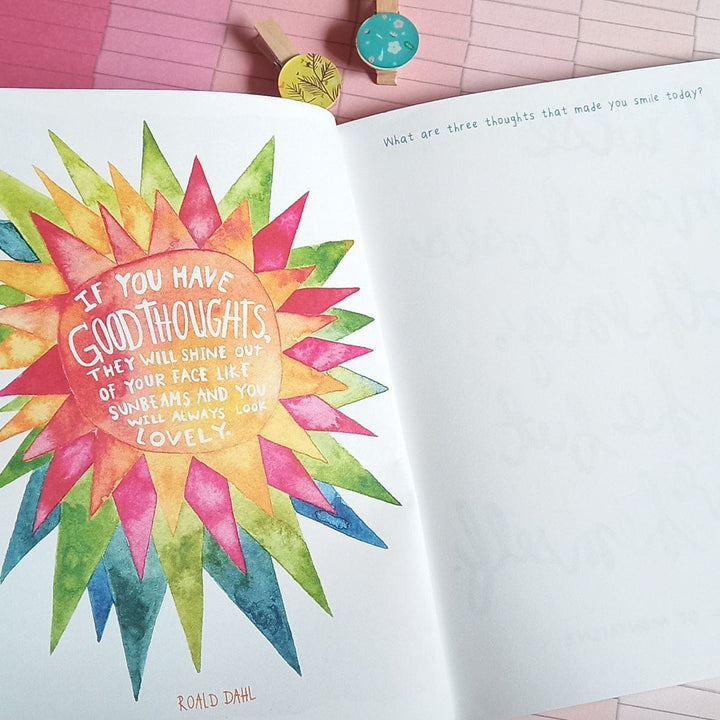 IF YOU HAVE
GOOD THOUGHTS,
THEY WILL SHINE OUT
OF YOUR FACE LIKE
SUNBEAMS AND YOU
WILL ALWAYS LOOK
LOVELY.
ROALD DAHL
What are three thoughts that made you smile today?